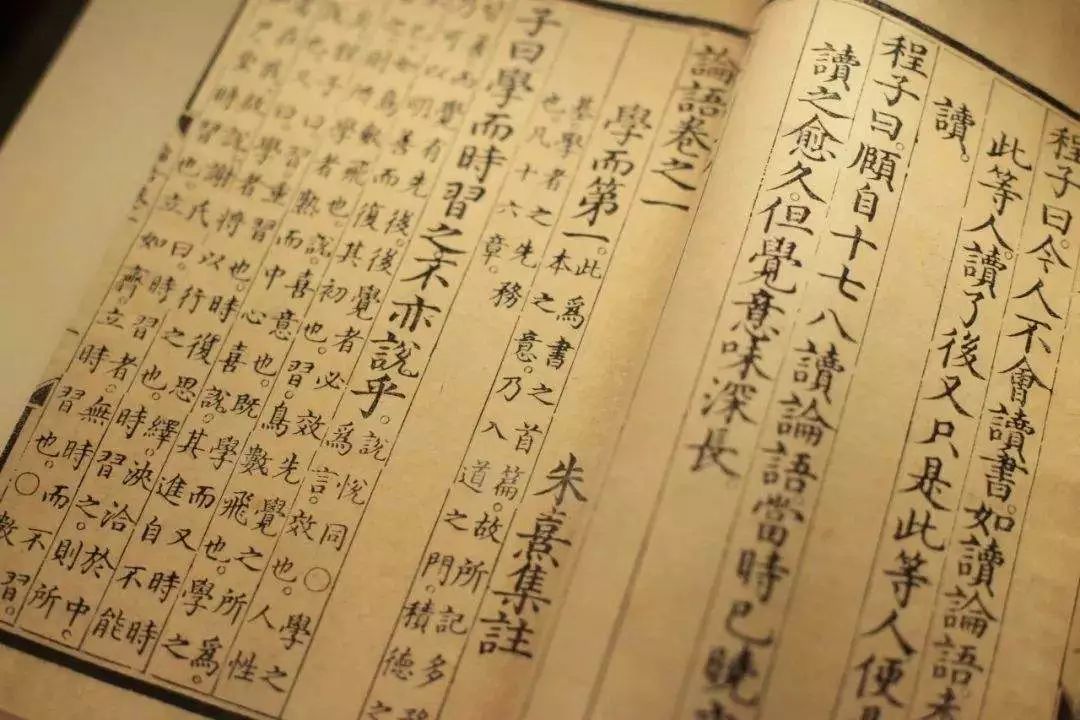 程子曰。今人不會讀書。如讀論語
此等人。讀了後又只是此等人便
讀。
程子曰。頤自十七八讀論語當時已曉
讀之愈久。但覺意味深長
論語卷之一
朱熹集註
學而第一。此為書之首篇。故所記多
本之意。乃入道之門。積德之
基學者之先務
也。凡十六章。
子曰學而時習之不亦說乎。說悅同○學之
為言效也。人性
善而覺有先後。後覺者必效先覺之所為。
乃可以明善而復其初也。習鳥數飛也。學之
如鳥數飛也。說喜意也。既學而又時時
則所學者熟。而中心喜說。其進自不能
子曰。習重習也。時復思繹。浹洽於中。
也。又曰。學者將以行之也。時習之。則所
者在我。故說。謝氏曰。時習者。無時而不習。
尸。坐時習也。立如齊。立時習也。○